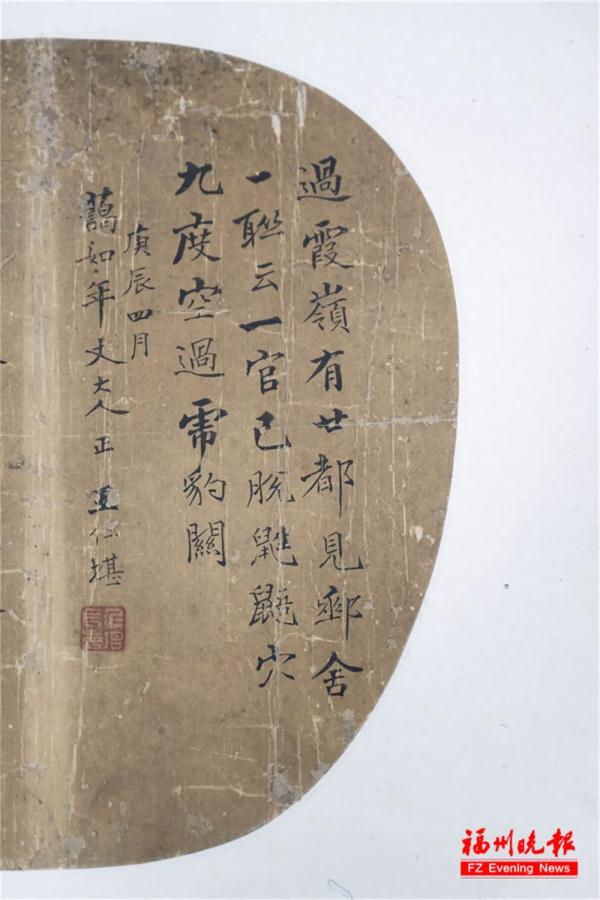 過霞嶺有廿都見郵舍
一聯云一官已脫鼪鼯穴
九度空過乕豹關
庚辰四月
藹如年丈大人正 王仁堪
福州晚报
FZ Evening News